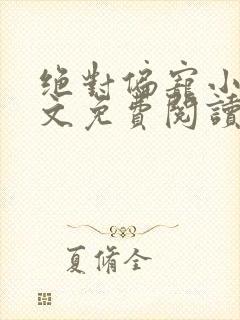 絕對偏寵小
文免費閱讀
夏脩全